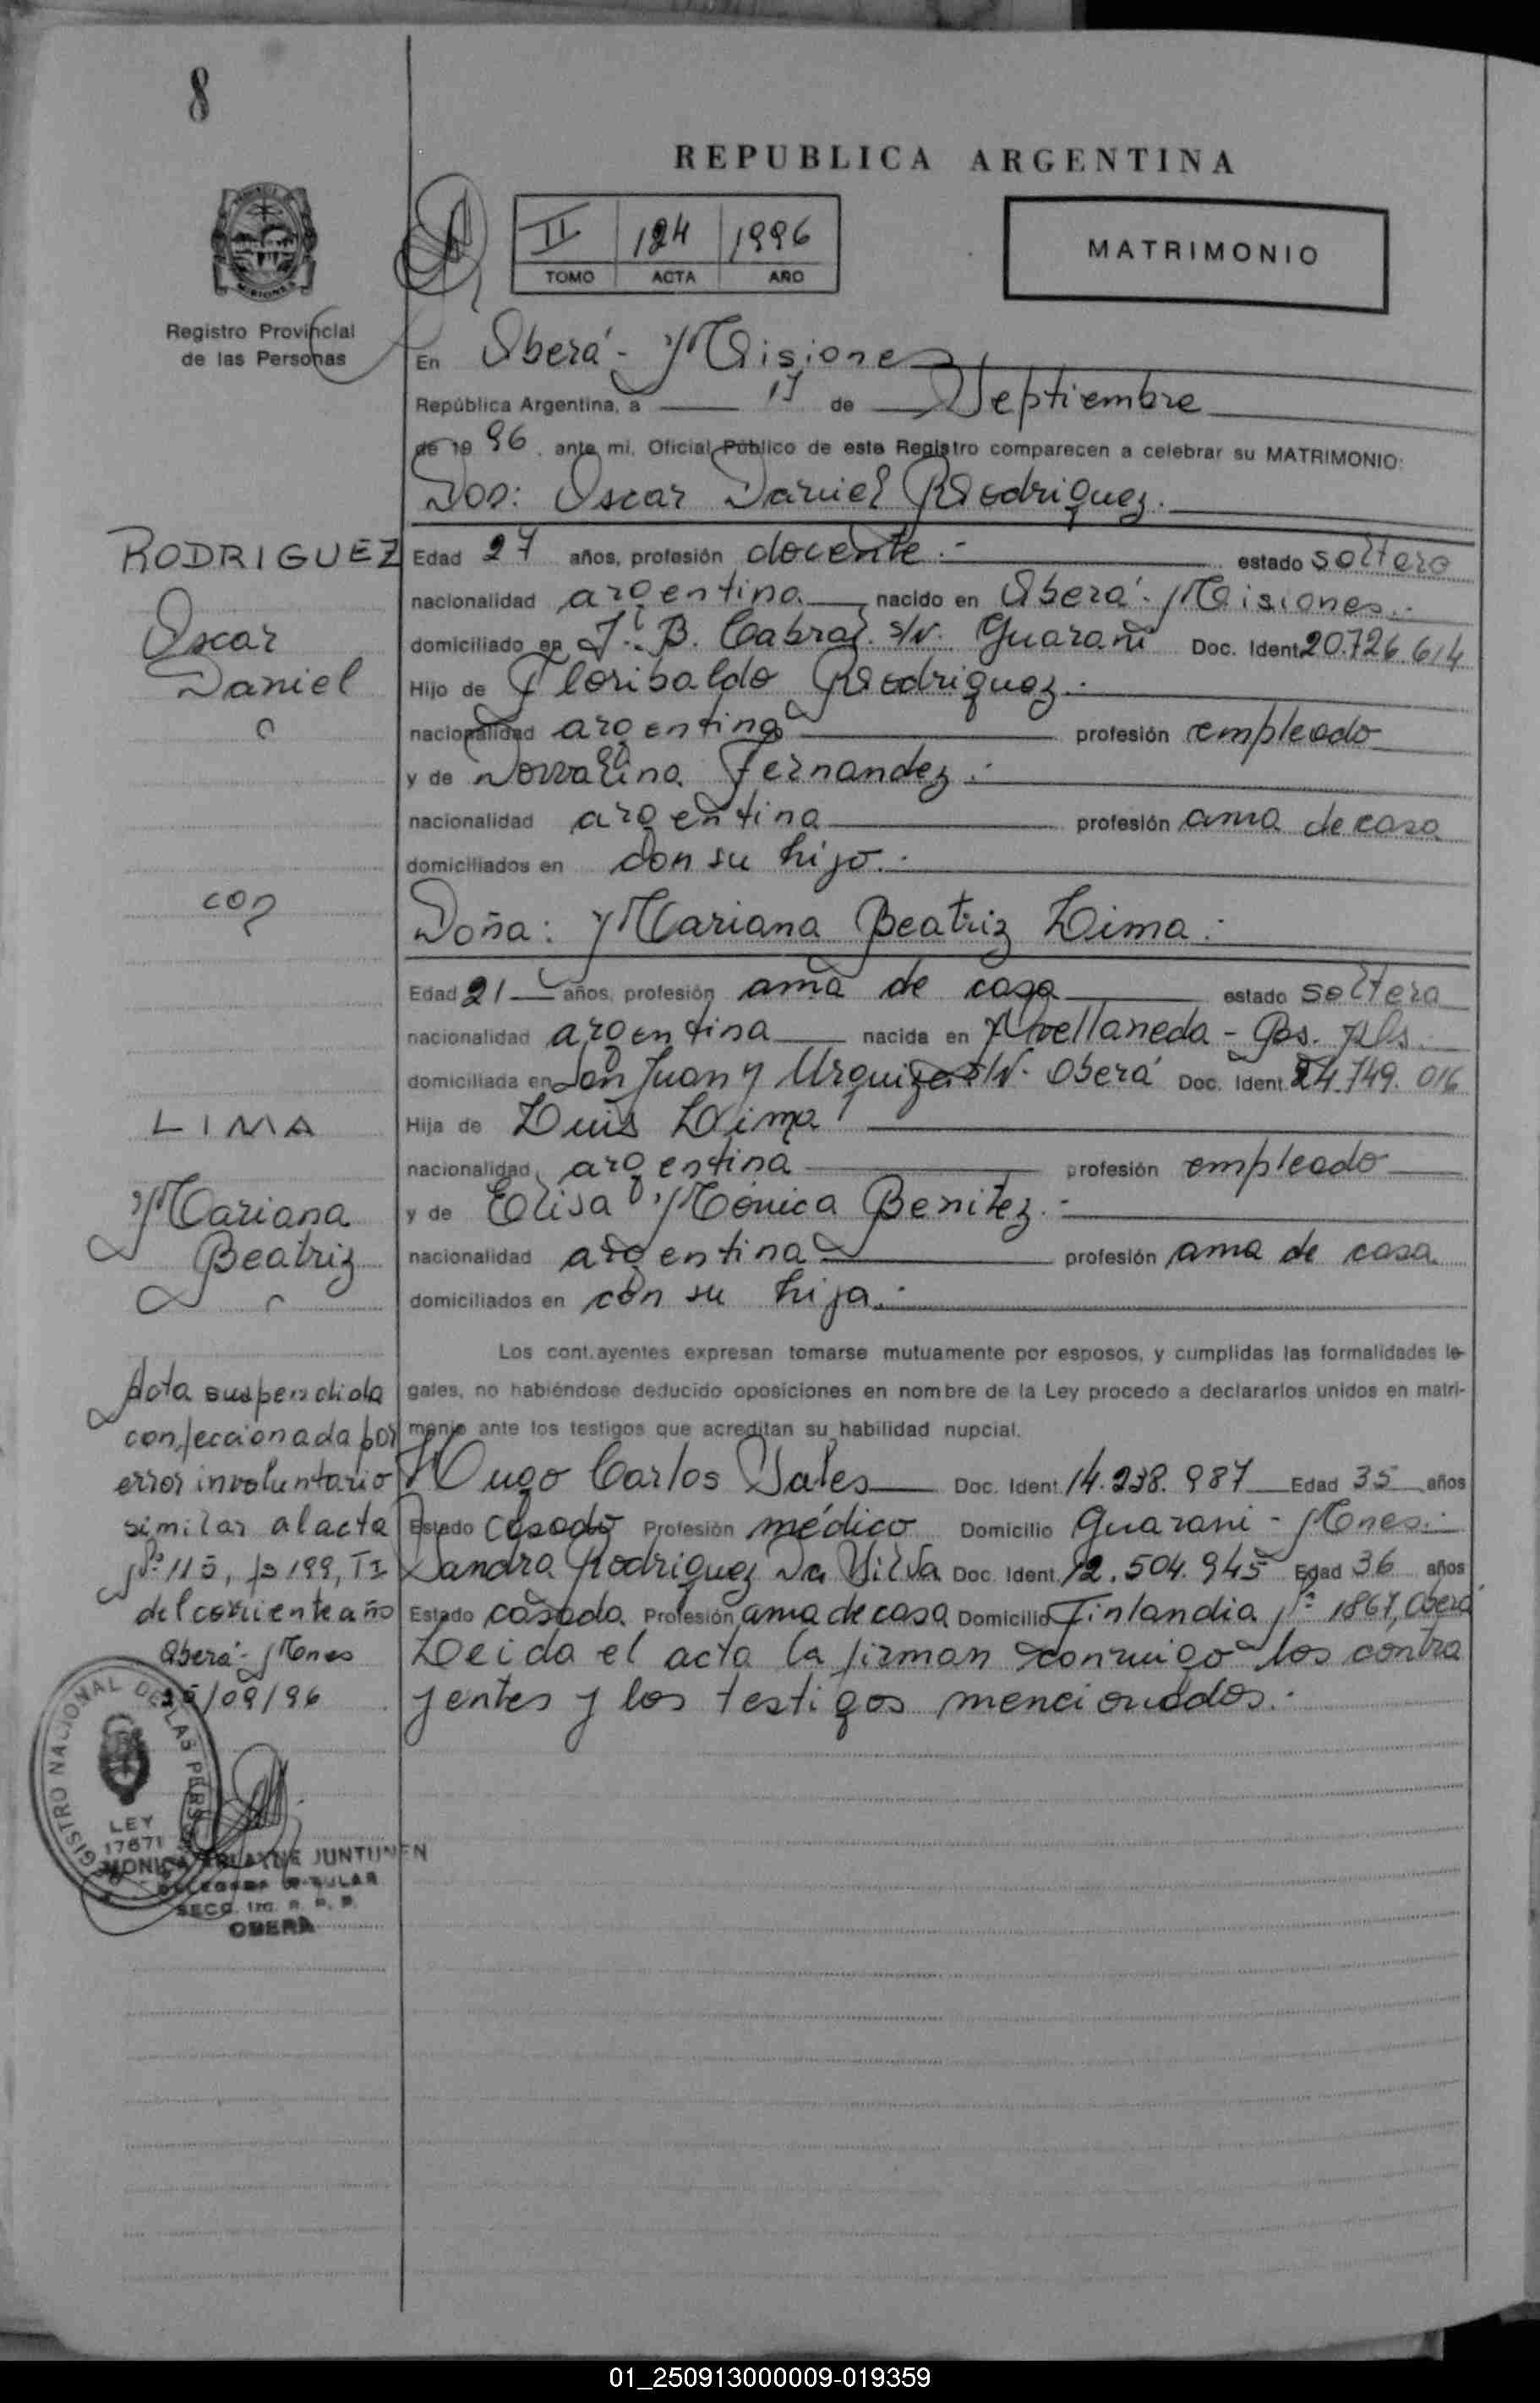 8
REPUBLICA ARGENTINA
II 124 1996
TOMO ACTA AÑO
MATRIMONIO
Registro Provincial
de las Personas
En Oberá - Misiones
República Argentina, a 17 de Septiembre
de 19 96, ante mi, Oficial Público de este Registro comparecen a celebrar su MATRIMONIO:
Don: Oscar Daniel Rodriguez.
RODRIGUEZ
Oscar
Daniel
Edad 27 años, profesión docente.- estado soltero
nacionalidad argentina nacido en Oberá - Misiones.-
domiciliado en J. B. Cabral s/N. Guaraní Doc. Ident. 20.726.614
Hijo de Floribaldo Rodriguez.-
nacionalidad argentina profesión empleado
y de Fernandez.-
nacionalidad argentina profesión ama de casa
domiciliados en con su hijo.-
con
Doña: Mariana Beatriz Lima.-
Edad 21 años, profesión ama de casa estado soltera
nacionalidad argentina nacida en Avellaneda - Bs. As.
domiciliada en San Juan y Urquiza s/N. Oberá Doc. Ident. 24.749.016
LIMA
Mariana
Beatriz
Hija de Luis Lima
nacionalidad argentina profesión empleado
y de Elisa Mónica Benitez.-
nacionalidad argentina profesión ama de casa
domiciliados en con su hija.-
Los cont.ayentes expresan tomarse mutuamente por esposos, y cumplidas las formalidades le-
gales, no habiéndose deducido oposiciones en nombre de la Ley procedo a declararlos unidos en matri-
monio ante los testigos que acreditan su habilidad nupcial.
Hugo Carlos Sales Doc. Ident. 14.238.987 Edad 35 años
Estado casado Profesión médico Domicilio Guaraní - Mnes.-
Sandra Rodriguez Da Silva Doc. Ident. 12.504.945 Edad 36 años
Estado casada Profesión ama de casa Domicilio Finlandia Nº 1867, Oberá
Leida el acta la firman conmigo los contra
yentes y los testigos mencionados.-
Acta suspendida
confeccionada por
error involuntario
similar al acta
Nº 115, fº 199, TI
del corriente año
Oberá - Mnes
/09/96
REGISTRO NACIONAL DE LAS PERSONAS
LEY
17671
MONICA JUNTUNEN
DELEGADA TITULAR
SECC. 1ra. R. P. P.
OBERA
01_250913000009-019359